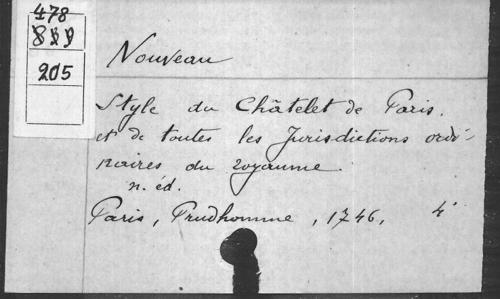 478
899
205
Nouveau
Style du Châtelet de Paris,
et de toutes les Jurisdictions ordi-
naires du royaume.
n. éd.
Paris, Prudhomme, 1746, 4°